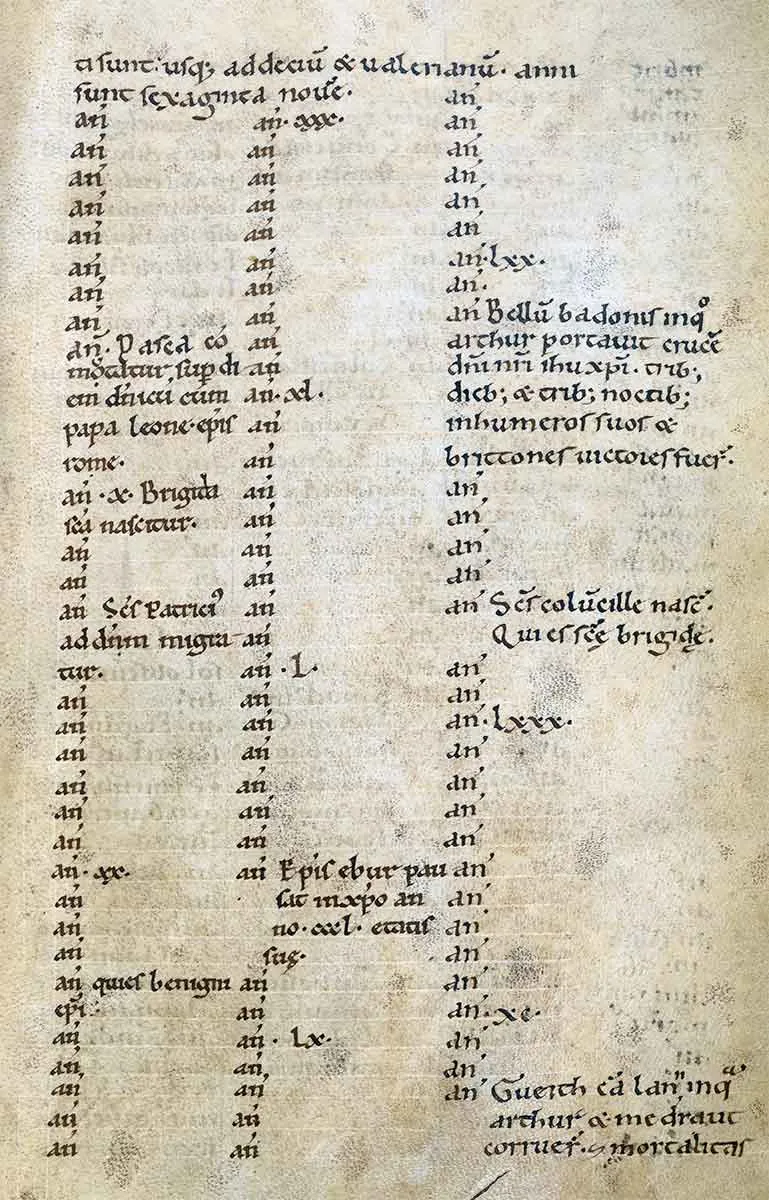 ti sunt. usq; ad deciū & ualerianū. anni
sunt sexaginta nouē.
an̄
an̄
an̄
an̄
an̄
an̄
an̄
an̄
an̄. Pasca cō
mutatur sup di
em dn̄icū cum
papa leone ep̄is
rome.
an̄ .x. Brigida
sc̄a nascitur.
an̄
an̄
an̄ Sc̄s Patriciꝰ
ad dn̄m migra
tur.
an̄
an̄
an̄
an̄
an̄
an̄
an̄ .xx.
an̄
an̄
an̄
an̄ quies benigni
ep̄i.
an̄
an̄
an̄
an̄
an̄
an̄ .xxx.
an̄
an̄
an̄
an̄
an̄
an̄
an̄
an̄
an̄
an̄ .xl.
an̄
an̄
an̄
an̄
an̄
an̄
an̄
an̄
an̄ .L.
an̄
an̄
an̄
an̄
an̄
an̄
an̄ Ep̄is ebur pau
sat in xp̄o an
no .cccl. etatis
suę.
an̄
an̄
an̄ . lx.
an̄
an̄
an̄
an̄
an̄
an̄
an̄
an̄
an̄
an̄
an̄ .lxx.
an̄.
an̄ Bellū badonis inq̊
arthur portauit crucē
dn̄i nr̄i ihu xp̄i. trib;
dieb; & trib; noctib;
in humeros suos &
brittones uictores fuer̄.
an̄
an̄
an̄
an̄
an̄ Sc̄s colūcille nasc̄.
Quies sc̄ę brigidę.
an̄
an̄
an̄ .lxxx.
an̄
an̄
an̄
an̄
an̄
an̄
an̄
an̄
an̄
an̄ .xc.
an̄
an̄
an̄ Gueith cā lann inq̄
arthur & medraut
corruer̄. & mortalitas